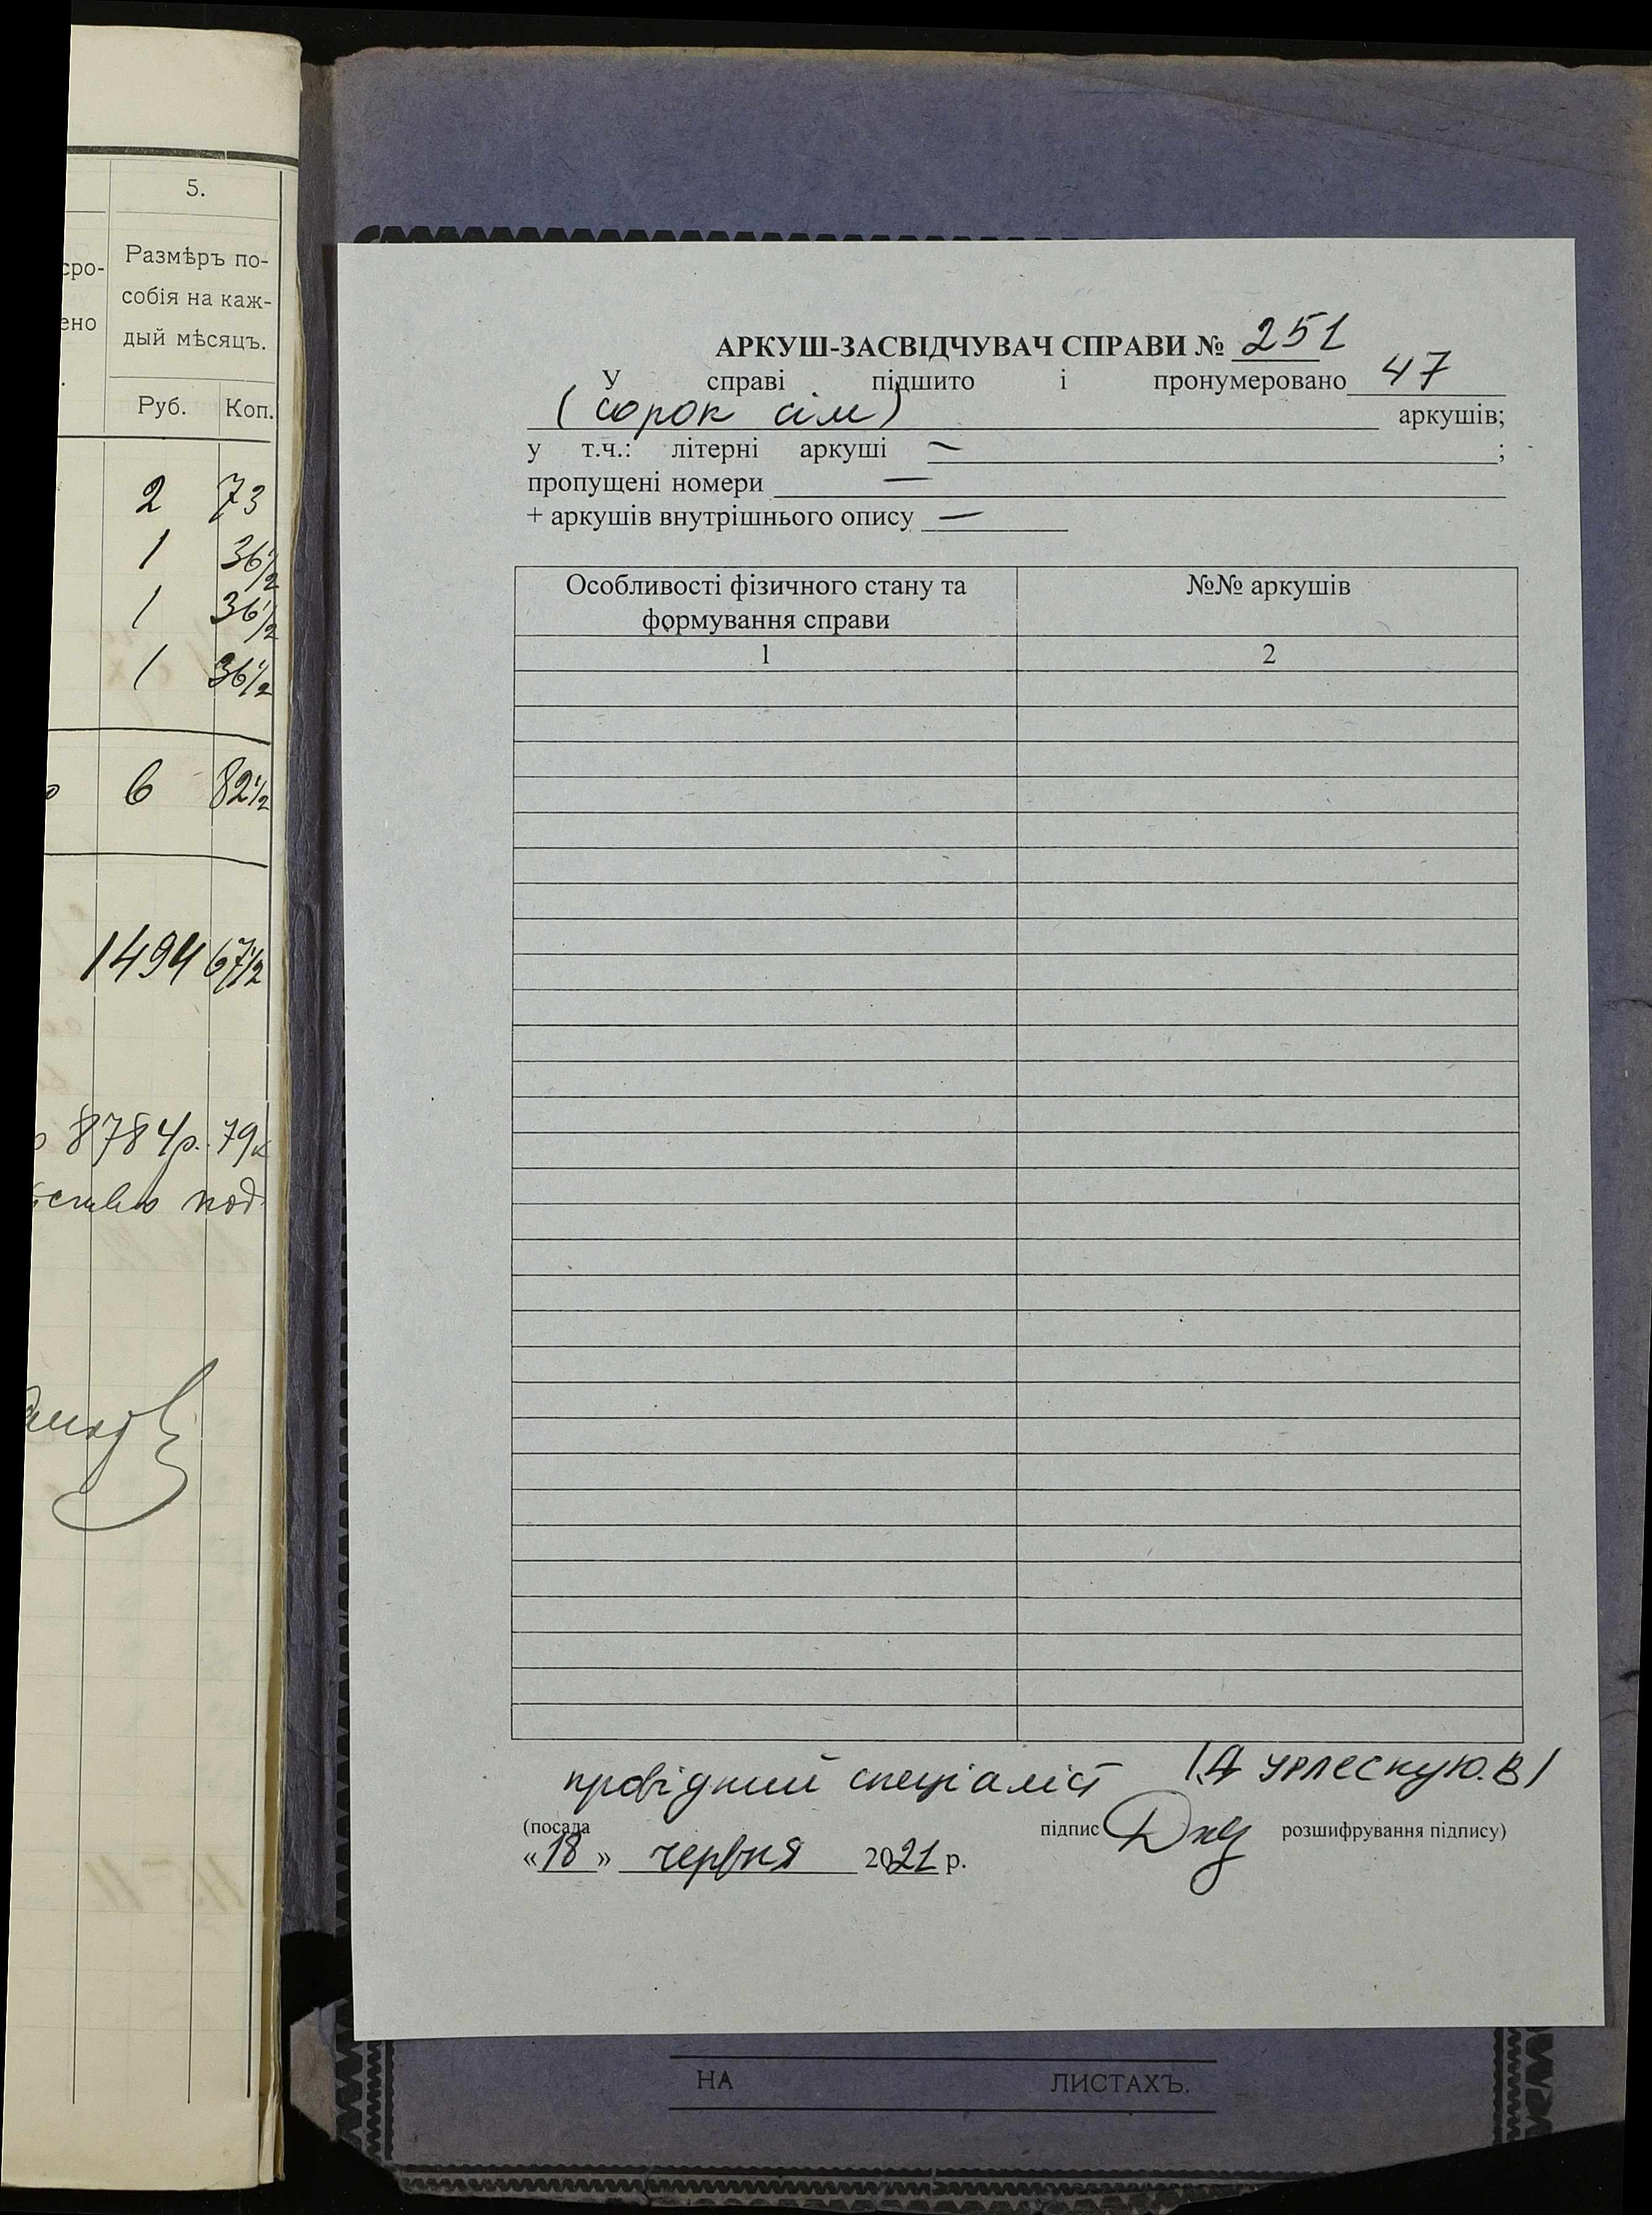 5.
сро-
ено
Размѣръ по-
собія на каж-
дый мѣсяцъ.
Руб. Коп.
2 73
1 36 1/2
1 36 1/2
1 36 1/2
6 82 1/2
1494 67 1/2
8784р. 79к
под
АРКУШ-ЗАСВІДЧУВАЧ СПРАВИ № 251
У справі підшито і пронумеровано 47
(сорок сім) аркушів;
у т.ч.: літерні аркуші — ;
пропущені номери —
+ аркушів внутрішнього опису —
Особливості фізичного стану та формування справи
№№ аркушів
1 2
провідний спеціаліст /Д УРЛЕСКУ Ю.В/
(посада підпис розшифрування підпису)
«18» червня 2021 р.
НА ЛИСТАХЪ.